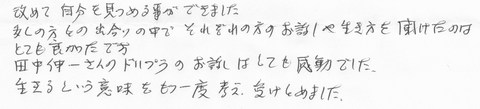 改めて自分を見つめる事ができました
多くの方々の出合いの中でそれぞれの方のお話しや生き方を聞けたのは
とても良かったです
田中伸一さんのドリプラのお話しはとても感動でした。
生きるという意味をもう一度考え、受けとめました。